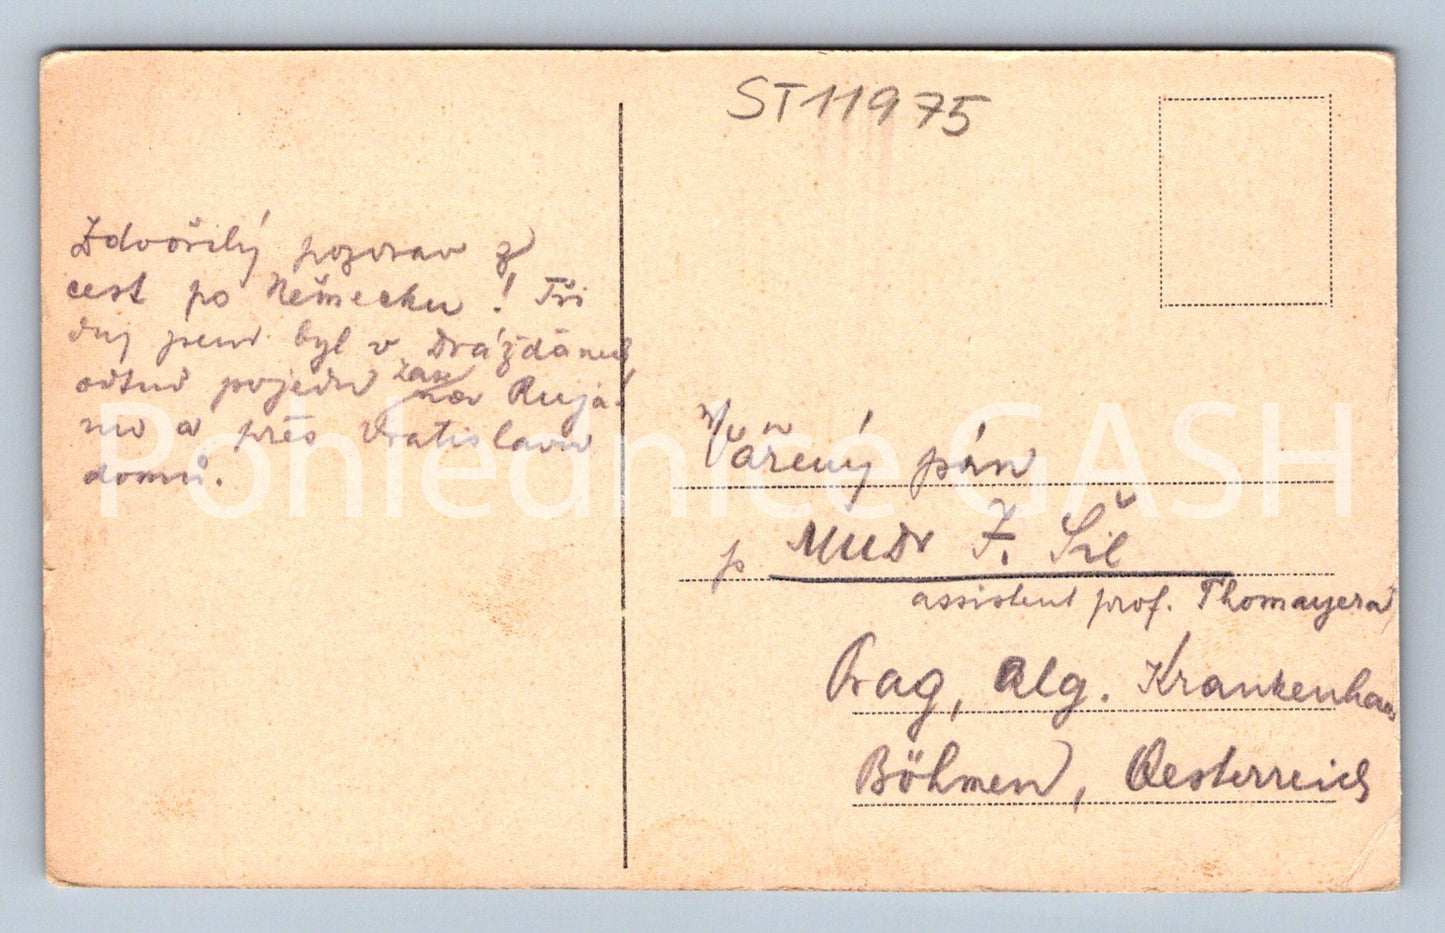 ST11975
Zdvořilý pozdrav z
cest po Německu! Tři
dny jsem byl v Drážďanech,
odtud pojedu zase na Rujá-
nu a přes Vratislavu
domů.
Vážený pán
p MUDr F. Šil
assistent prof. Thomayera
Prag, Alg. Krankenhaus
Böhmen, Oesterreich
Pohlednice GASH